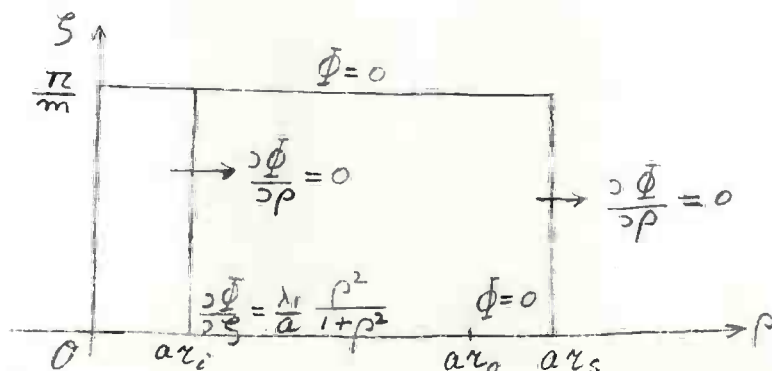 ζ
π/m
Φ = 0
∂Φ/∂ρ = 0
∂Φ/∂ρ = 0
∂Φ/∂ζ = λ₁/a ρ²/(1+ρ²)
Φ = 0
0 ar_i ar_o ar_s ρ